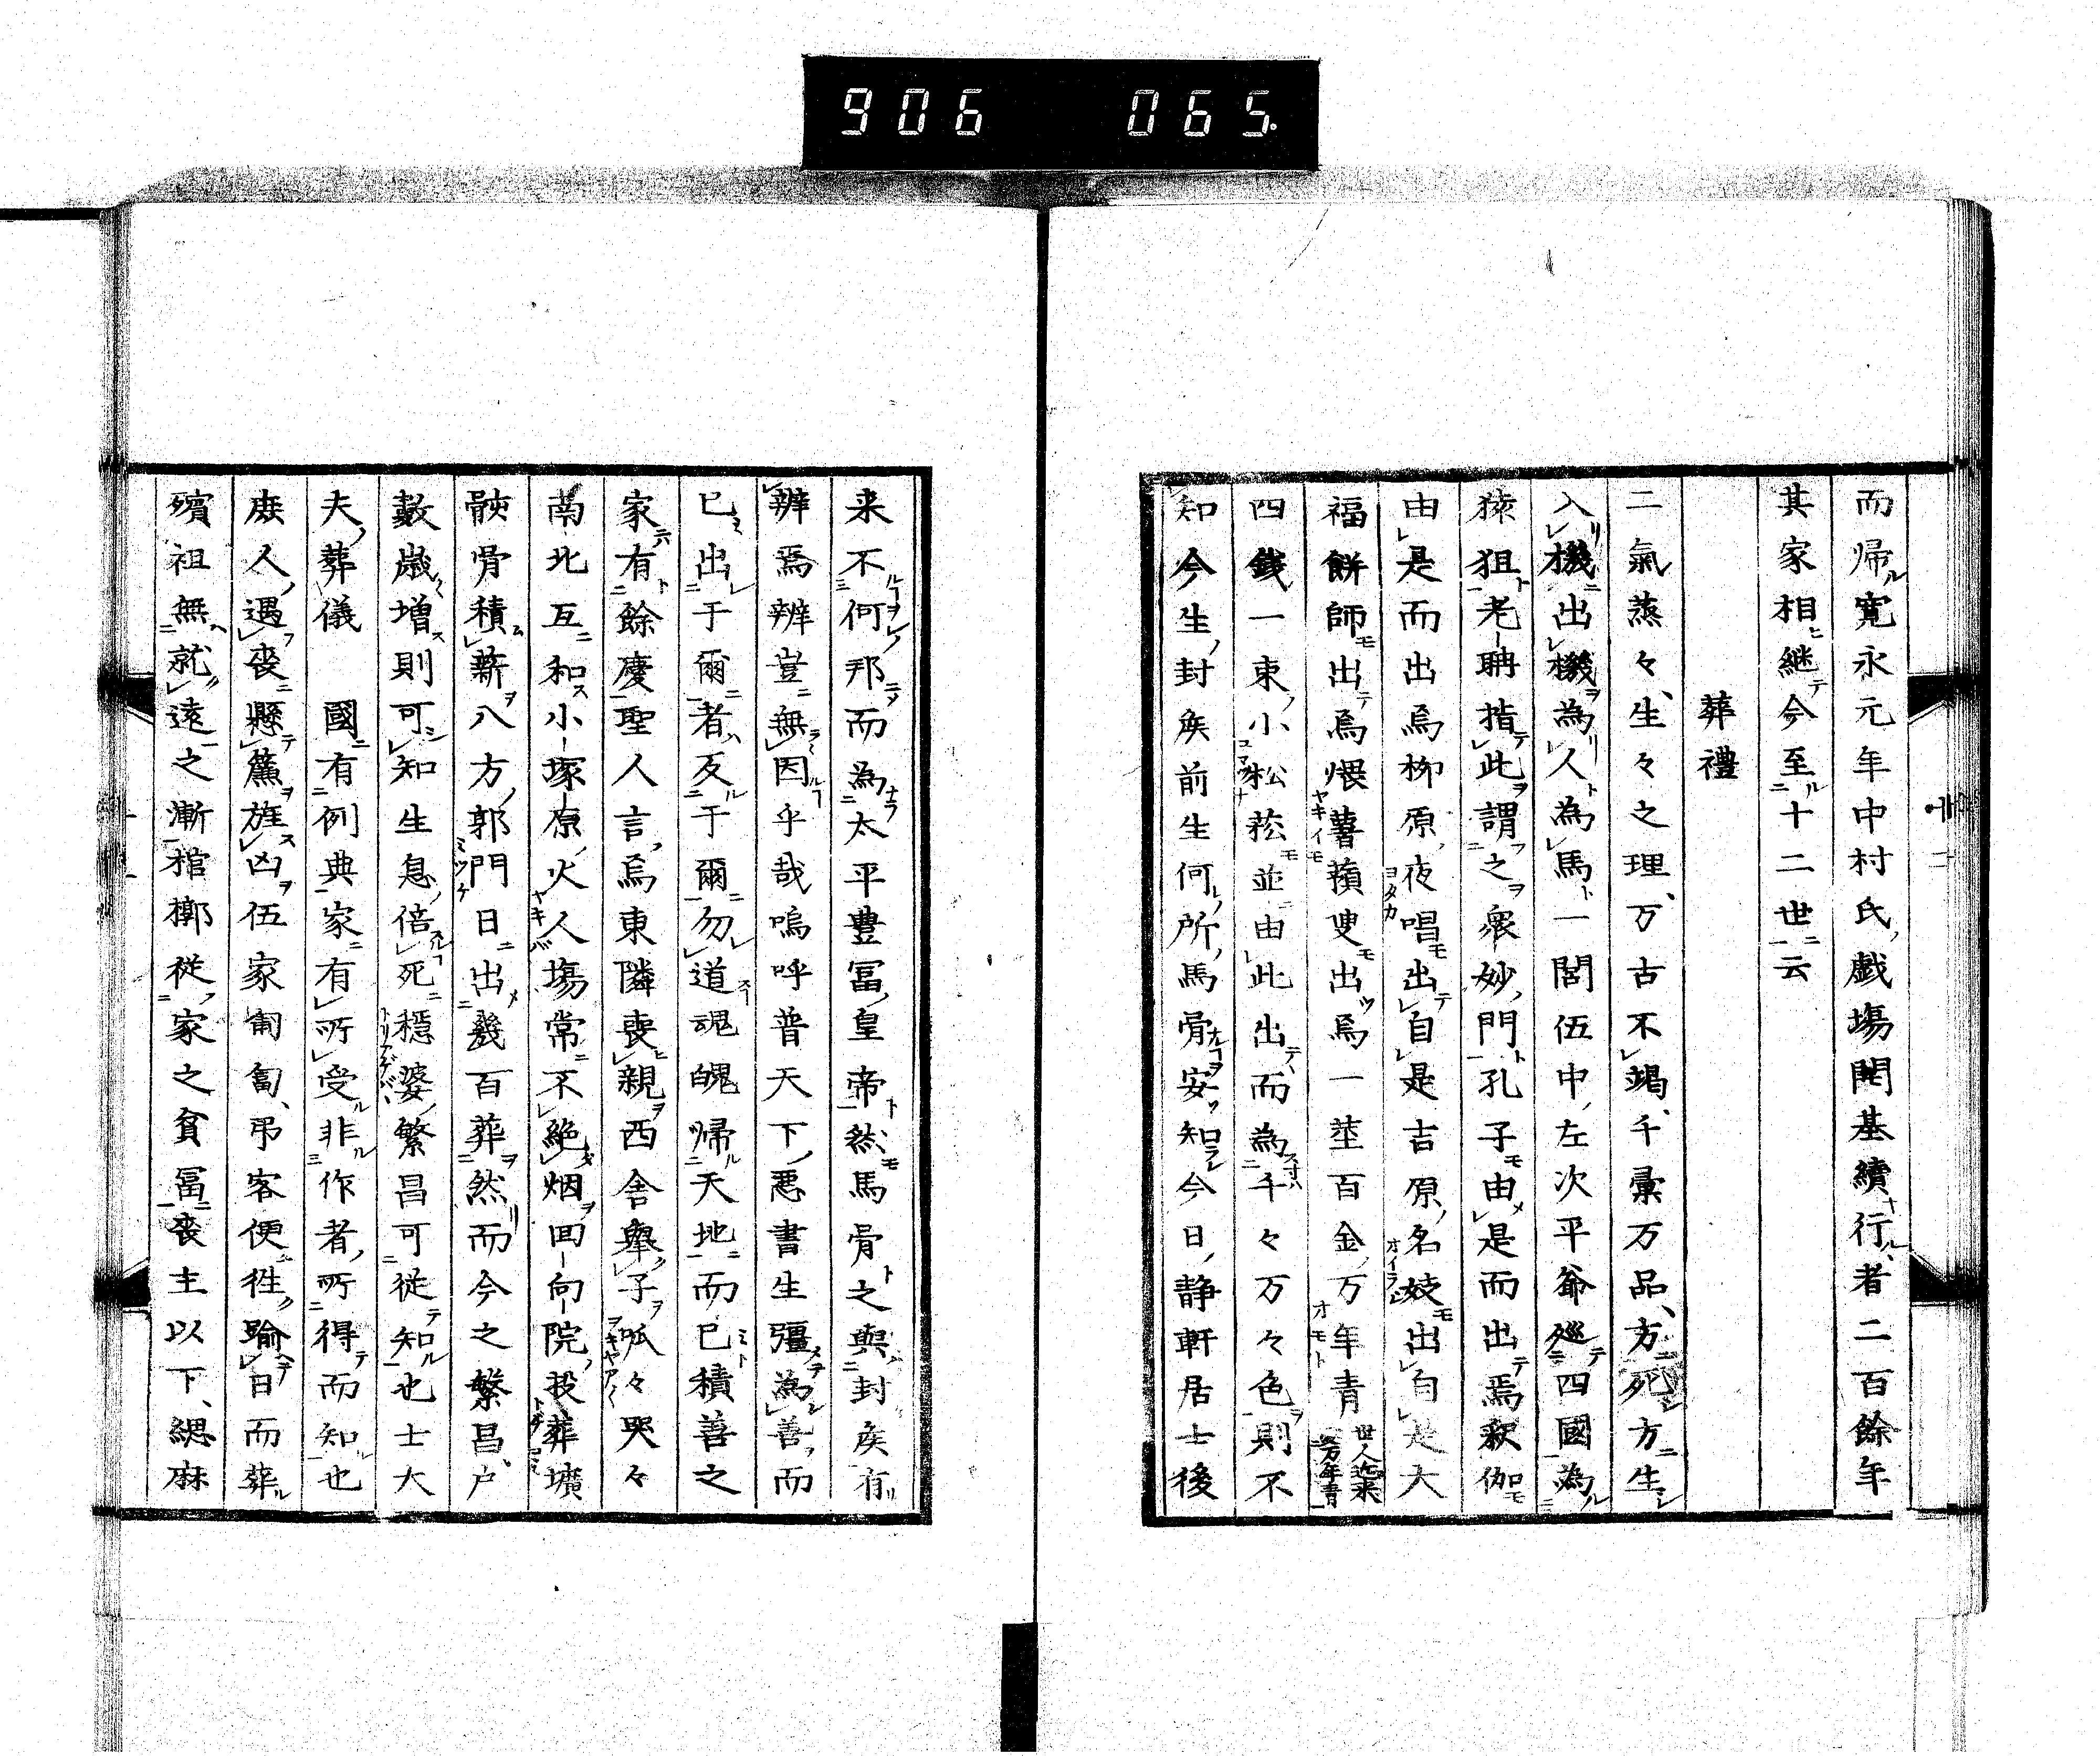 906 065.
而帰寛永元年中村氏戯場開基續行者二百餘年
其家相継今至十二世云
葬禮
二氣蒸々生々之理万古不竭千彙万品方死方生
入機出機為人為馬一閻伍中左次平爺廵四國為
猿狙老聃指此謂之衆妙門孔子由是而出焉釈伽
由是而出焉柳原夜唱出自是吉原名妓出自是大
福餅師出焉煨薯蘋叟出焉一莖百金万年青
四銭一束小松菘並由此出而為千々万々色則不
知今生封矦前生何所馬骨安知今日静軒居士後
来不何邦而為太平豊冨皇帝然馬骨之與封矦有
辨焉辨豈無因乎哉嗚呼普天下悪書生彊為善而
已出于爾者反于爾勿道魂魄帰天地而已積善之
家有餘慶聖人言焉東隣喪親西舎擧子呱々哭々
南北互和小塚原火人場常不絶烟回向院投葬壙
骸骨積薪八方郭門日出幾百葬然而今之繁昌户
數歳増則可知生息倍死穏婆繁昌可従知也士大
夫葬儀　國有例典家有所受非作者所得而知也
庶人遇喪懸簾旌凶伍家匍匐弔客便徃踰日而葬
殯祖無就遠之漸棺槨従家之貧冨喪主以下緦麻